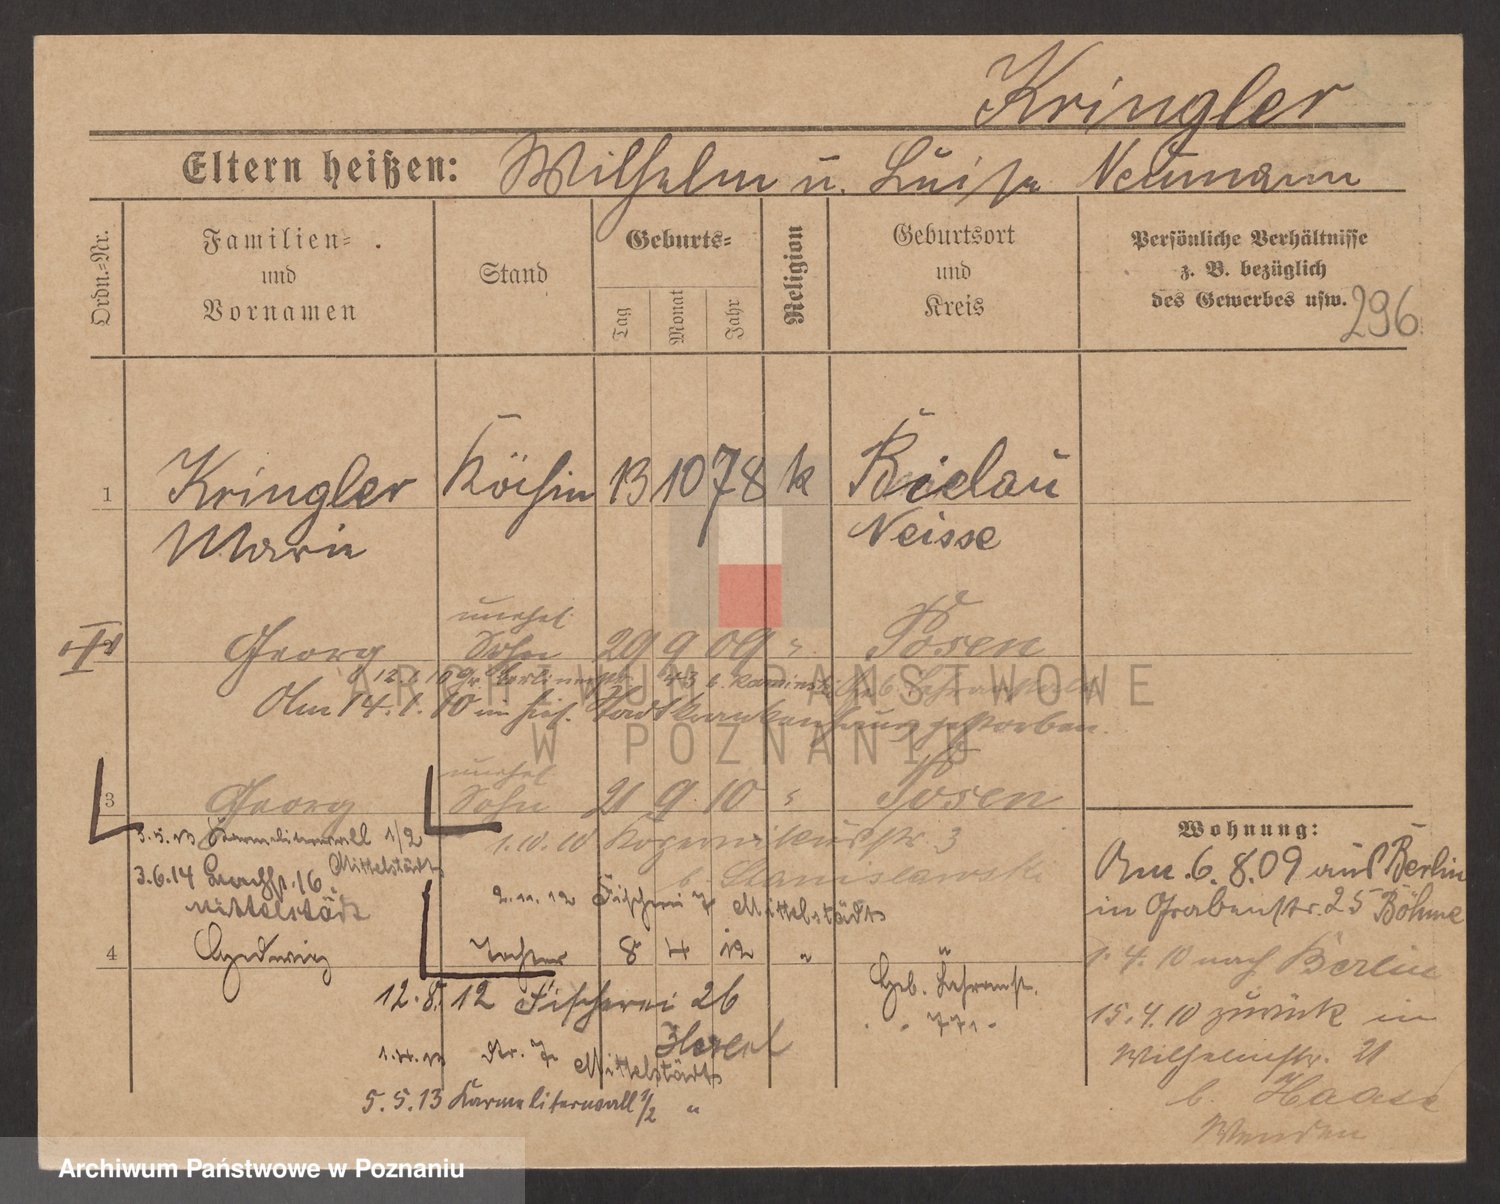 Kringler
Eltern heißen: Wilhelm u. Luise Neumann
Ordn.-Nr.
Familien- und Vornamen
Stand
Geburts-
Tag
Monat
Jahr
Religion
Geburtsort und Kreis
Persönliche Verhältnisse
z. B. bezüglich
des Gewerbes usw.
296
1 Kringler Köchin 13 10 78 k Bielau
Marie Neisse
unehel.
Georg Sohn 29 9 09 " Posen
ARCHIWUM PAŃSTWOWE
Am 14.1.10 im hies. Stadtkrankenhaus gestorben.
W POZNANIU
unehel
3 Georg Sohn 21 9 10 " Posen
5.5.13 Karmeliterwall 1/2
Mittelstädt
1.10.10
3
b. Stanislawski
3.6.14 16
Mittelstädt
2.11.12 Fischerei 7 Mittelstädt
4 Hedwig Tochter 8 4 12 " "
Geb. Lehranst.
12.8.12 Fischerei 26
771
Mittelstädt
5.5.13 Karmeliterwall 1/2 "
Wohnung:
Am 6.8.09 aus Berlin
in Grabenstr. 25 Böhme
1.4.10 nach Berlin
15.4.10 zurück in
Wilhelmstr. 21
b. Haase
Wenden
Archiwum Państwowe w Poznaniu